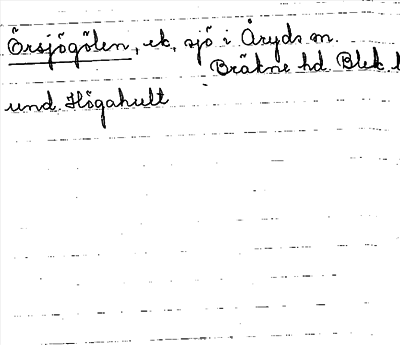 Örsjögölen, ek, sjö i Åryds sn.
Bräkne hd Blek. l
und. Högahult